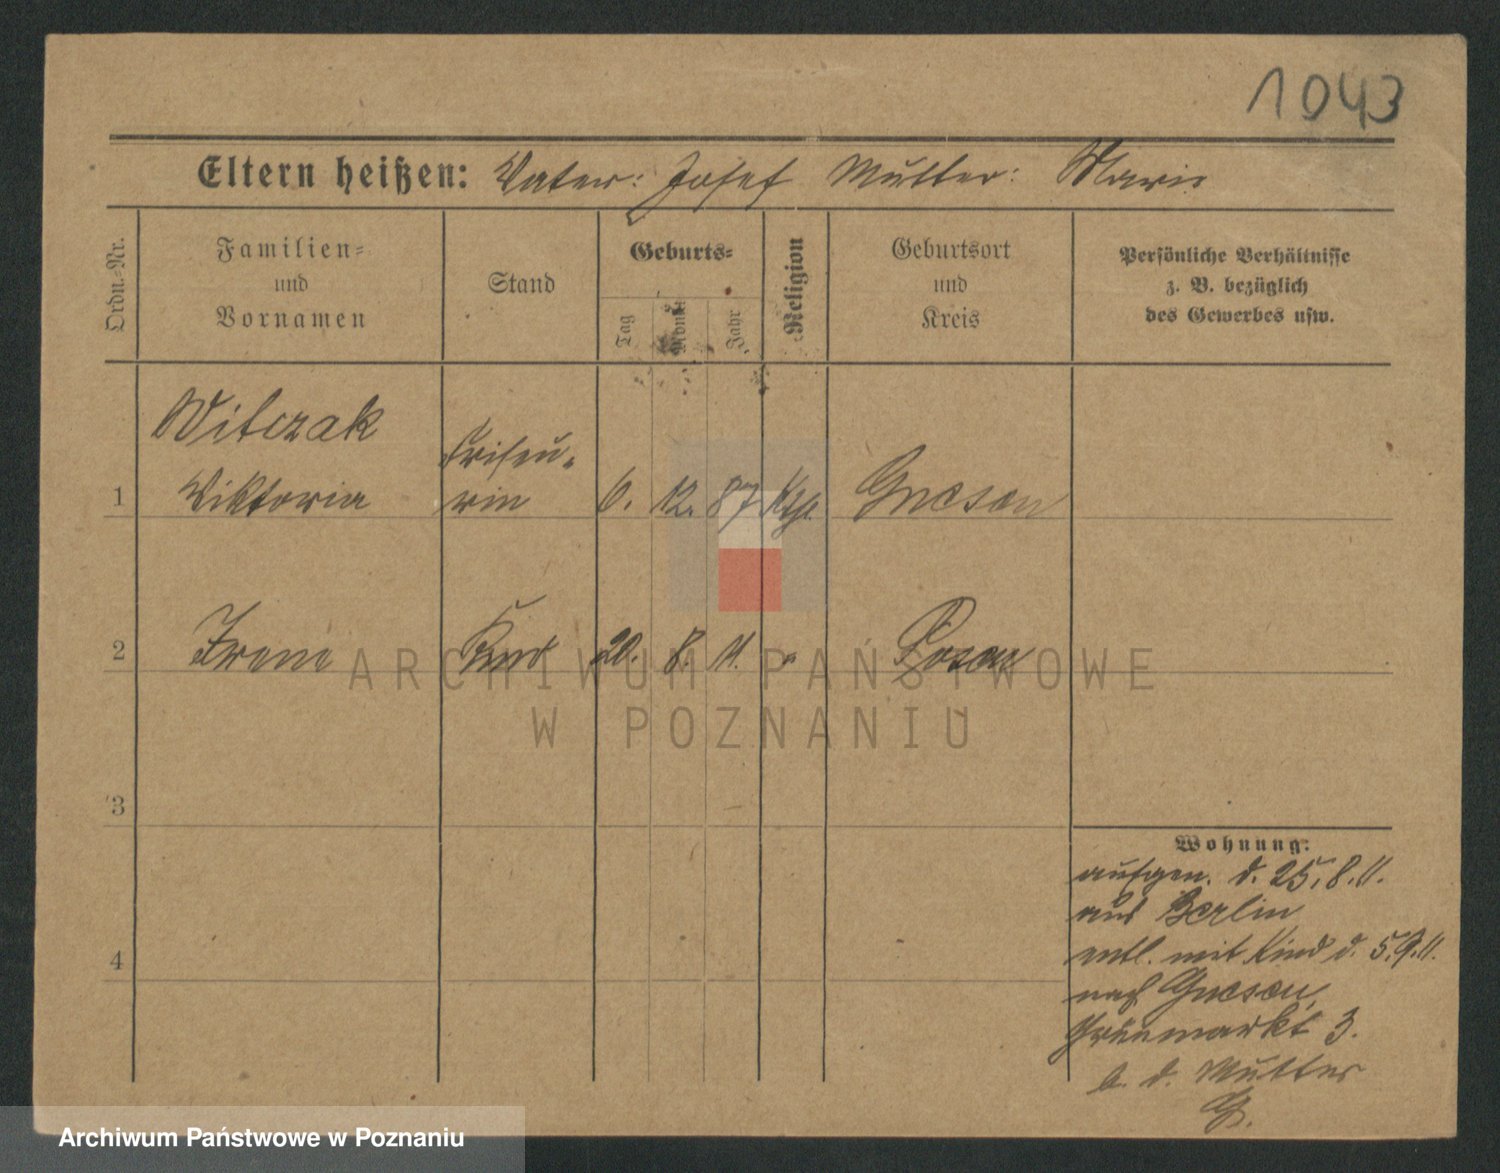 1043
Eltern heißen: Vater: Josef Mutter: Marie
Ordn.-Nr.
Familien-
und
Vornamen
Stand
Geburts-
Tag
Monat
Jahr
Religion
Geburtsort
und
Kreis
Persönliche Verhältnisse
z. B. bezüglich
des Gewerbes usw.
Witczak
1 Viktoria Friseu-
rin 6. 12. 87 Kth. Gnesen
2 Irene Kind 20. 8. 11. " Posen
ARCHIWUM PAŃSTWOWE
W POZNANIU
3
4
Wohnung:
aufgen. d. 25.8.11.
aus Berlin
entl. mit Kind d. 5.9.11.
nach Gnesen,
Grünmarkt 3.
b. d. Mutter
G.
Archiwum Państwowe w Poznaniu